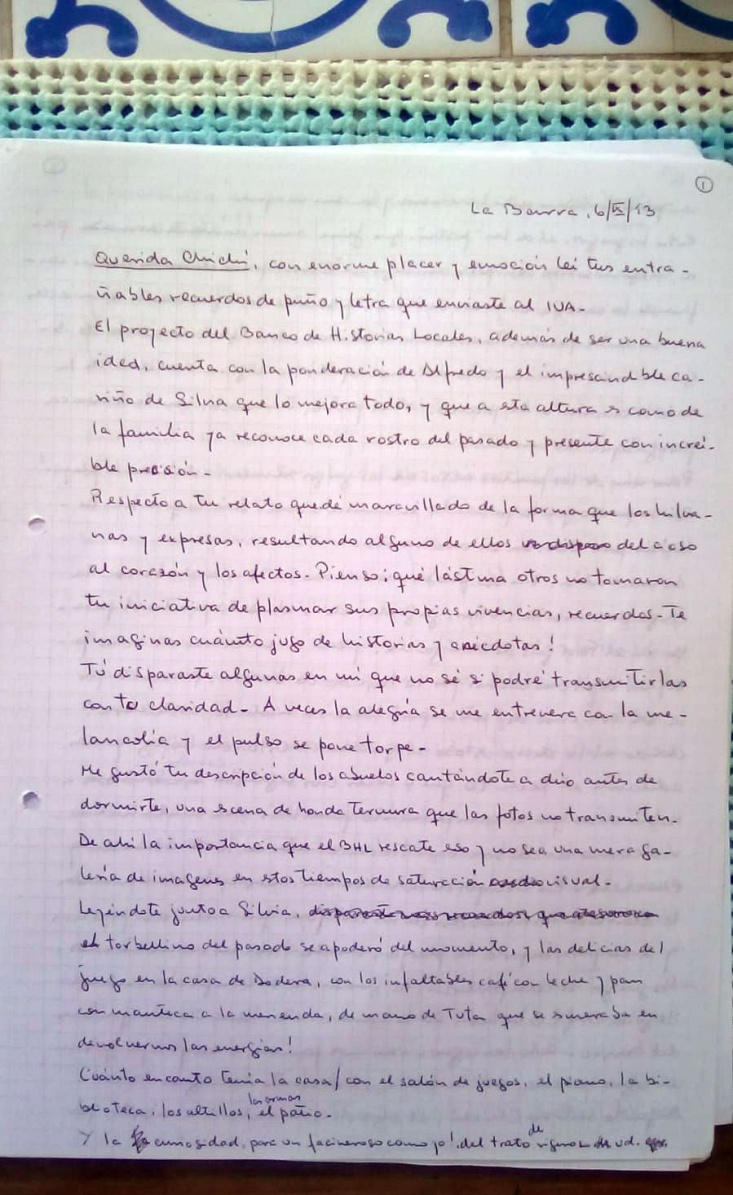 1
La Barra, 6/IX/13
Querida Chichí, con enorme placer y emoción leí tus entra-
ñables recuerdos de puño y letra que enviaste al IUA-
El proyecto del Banco de Historias Locales, además de ser una buena
idea, cuenta con la ponderación de Alfredo y el imprescindible ca-
riño de Silvia que lo mejora todo, y que a esta altura es como de
la familia ya reconoce cada rostro del pasado y presente con increí-
ble precisión-
Respecto a tu relato quedé maravillado de la forma que los hilva-
nas y expresas, resultando alguno de ellos del acoso
al corazón y los afectos. Pienso ¡qué lástima otros no tomaron
tu iniciativa de plasmar sus propias vivencias, recuerdos- Te
imaginas cuánto jugo de historias y anécdotas!
Tú disparaste algunas en mí que no sé si podré transmitirlas
con tu claridad- A veces la alegría se me entrevera con la me-
lancolía y el pulso se pone torpe-
Me gustó tu descripción de los abuelos cantándote a dúo antes de
dormirte, una escena de honda ternura que las fotos no transmiten.
De ahí la importancia que el BHL rescate eso y no sea una mera ga-
lería de imágenes en estos tiempos de saturación visual-
Leyéndote junto a Silvia,
el torbellino del pasado se apoderó del momento, y las delicias del
juego en la casa de Dodera, con los infaltables café con leche y pan
con manteca a la merienda, de mano de Tuta que se esmeraba en
devolvernos las energías!
Cuánto encanto tenía la casa/con el salón de juegos, el piano, la bi-
blioteca, los altillos, las armas el patio-
Y la curiosidad, para un facineroso como yo! del trato de ud.